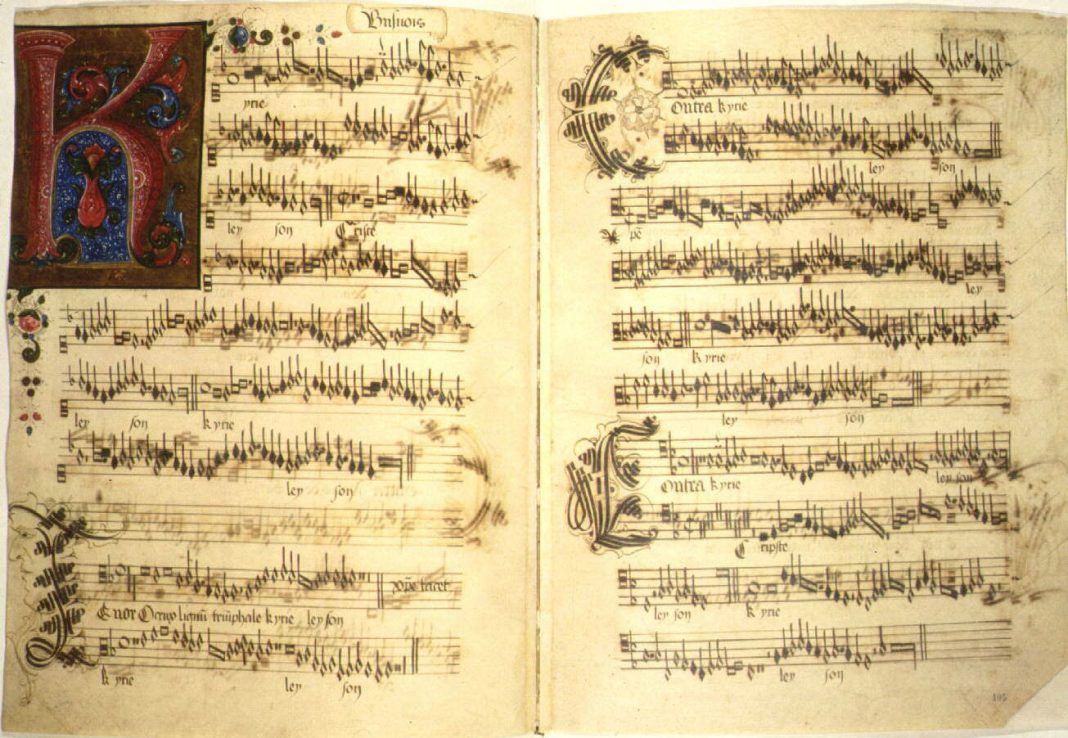 Busnois
K yrie
ley son Criste
ley son kyrie
ley son
xp̄e tacet
Tenor O crux lignū triūphale kyrie ley son
k yrie
ley son
Contra kyrie
ley son
xpē
ley
son kyrie
ley son
Contra kyrie
ley son
Cripste
ley son k yrie
ley son
105